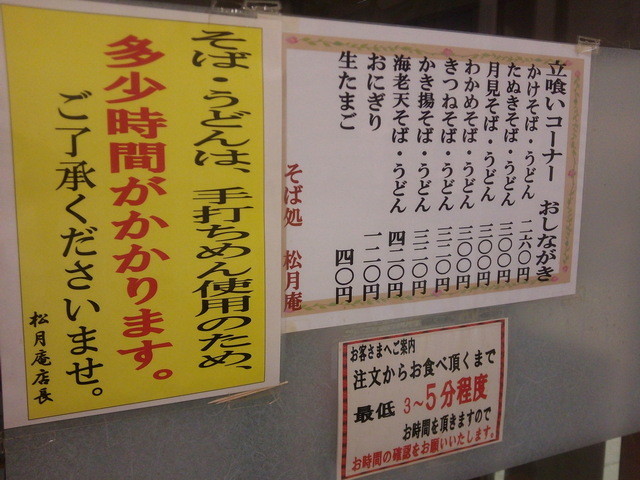 立喰いコーナー おしながき
かけそば・うどん 二六〇円
たぬきそば・うどん 三〇〇円
月見そば・うどん 三〇〇円
わかめそば・うどん 三〇〇円
きつねそば・うどん 三二〇円
かき揚そば・うどん 三二〇円
海老天そば・うどん 四二〇円
おにぎり 一二〇円
生たまご 四〇円
そば処 松月庵
そば・うどんは、手打ちめん使用のため、
多少時間がかかります。
ご了承くださいませ。
松月庵店長
お客さまへご案内
注文からお食べ頂くまで
最低 3～5分程度
お時間を頂きますので
お時間の確認をお願いいたします。